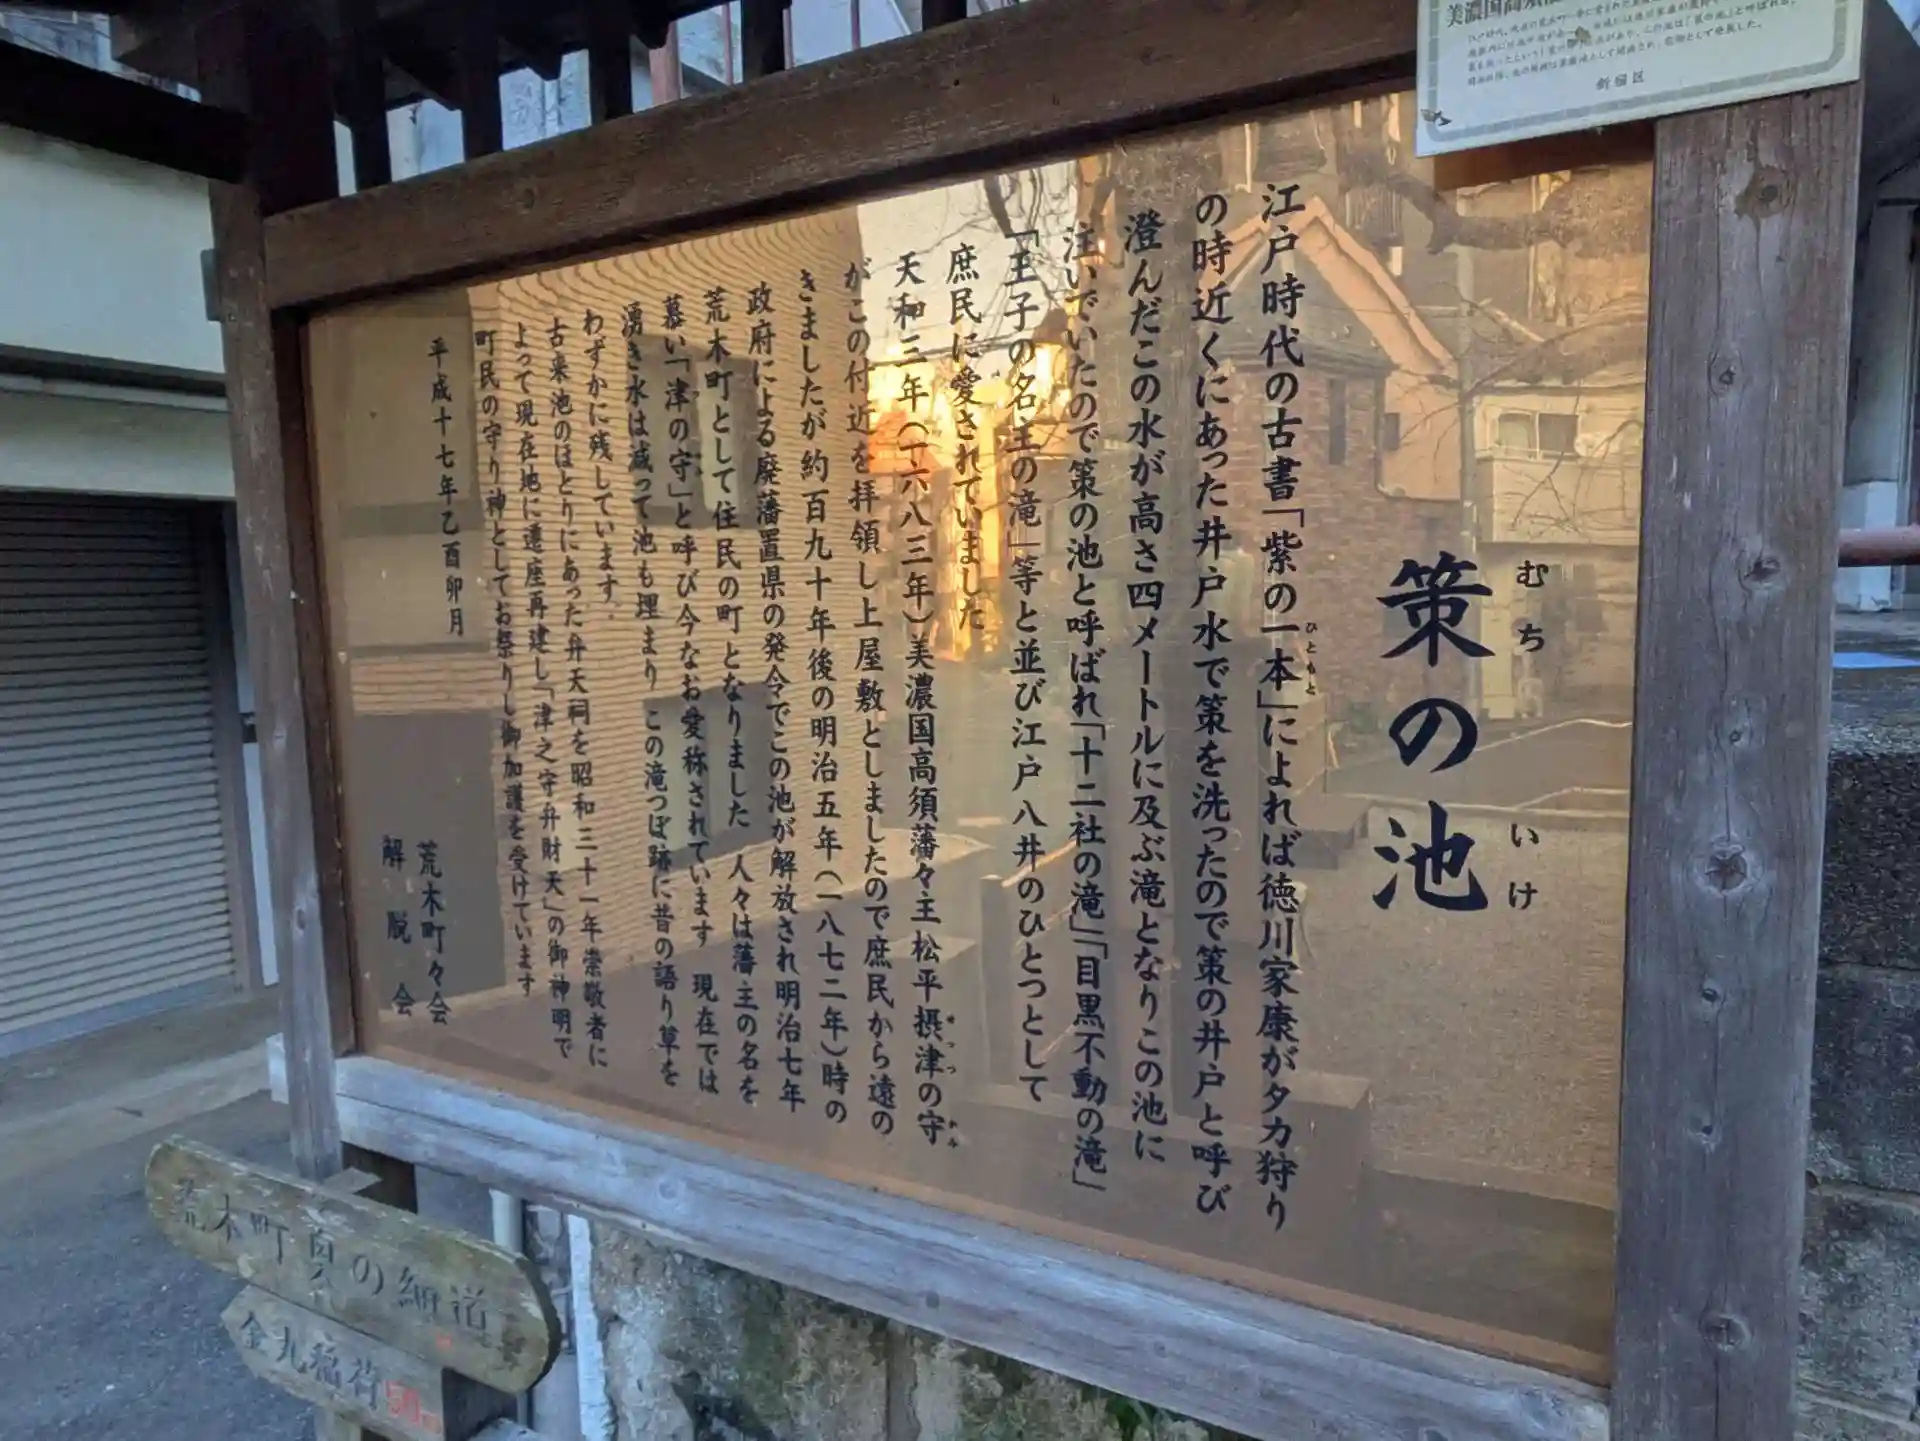 策の池
むち いけ
江戸時代の古書「紫の一本」によれば徳川家康がタカ狩り
ひともと
の時近くにあった井戸水で策を洗ったので策の井戸と呼び
澄んだこの水が高さ四メートルに及ぶ滝となりこの池に
注いでいたので策の池と呼ばれ「十二社の滝」「目黒不動の滝」
「王子の名主の滝」等と並び江戸八井のひとつとして
庶民に愛されていました
天和三年(一六八三年)美濃国高須藩々主松平摂津の守
せっつ かみ
がこの付近を拝領し上屋敷としましたので庶民から遠の
きましたが約百九十年後の明治五年(一八七二年)時の
政府による廃藩置県の発令でこの池が解放され明治七年
荒木町として住民の町となりました 人々は藩主の名を
慕い「津の守」と呼び今なお愛称されています 現在では
湧き水は減って池も埋まり この滝つぼ跡に昔の語り草を
わずかに残しています.
古来池のほとりにあった弁天祠を昭和三十一年崇敬者に
よって現在地に遷座再建し「津之守弁財天」の御神明で
町民の守り神としてお祭りし御加護を受けています
平成十七年乙酉卯月
荒木町々会
解脱会
新宿区
荒木町奥の細道
金丸稲荷 50